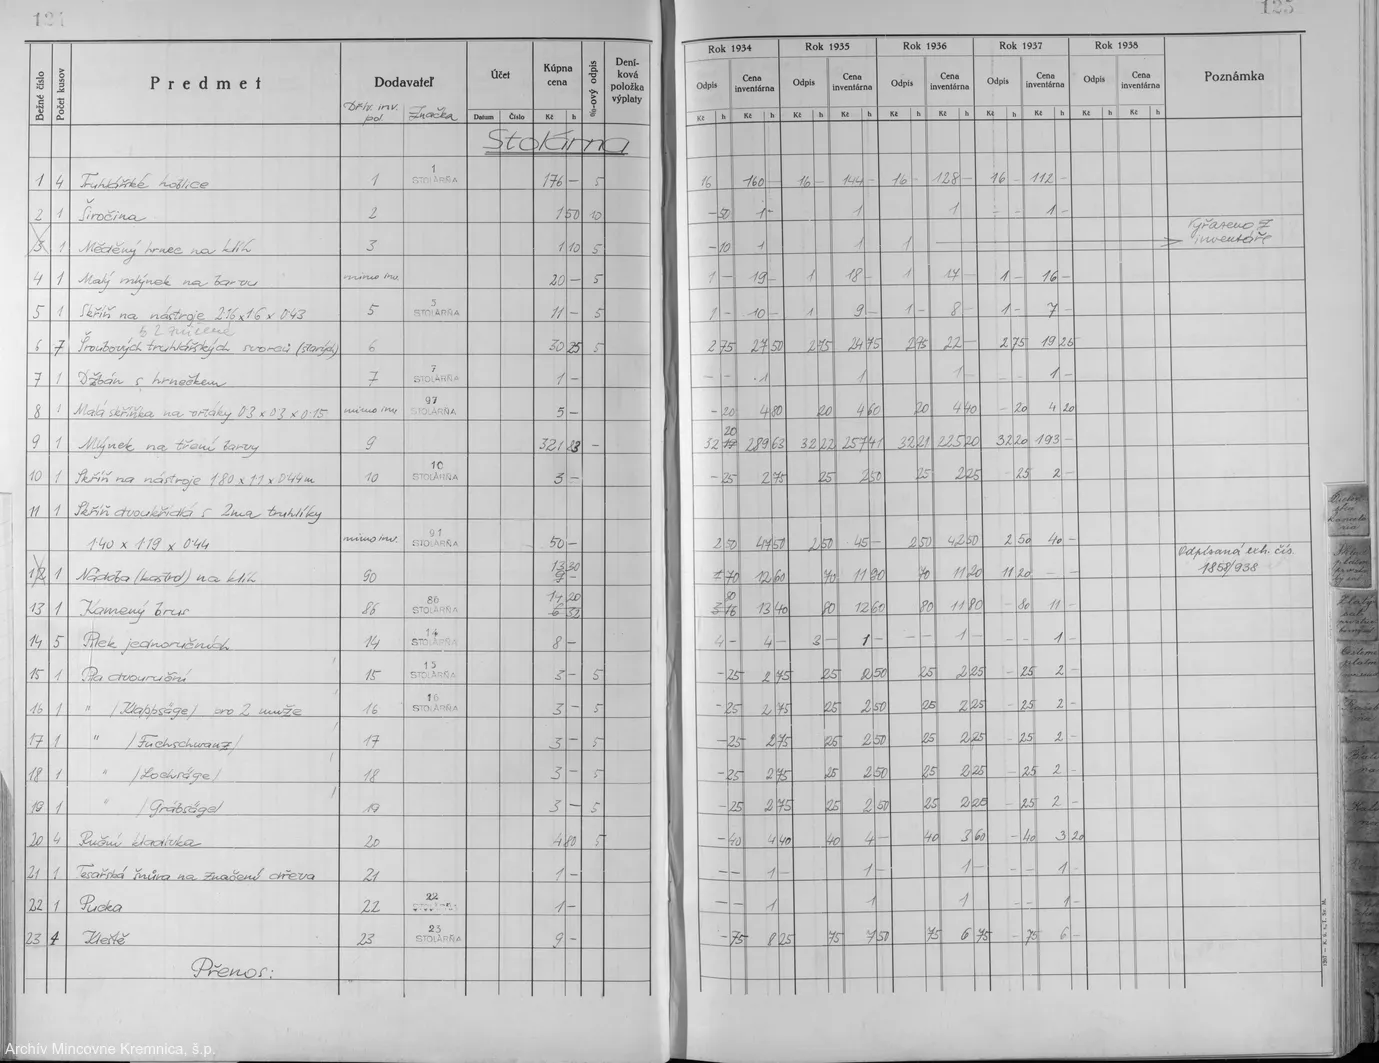 124
125
Bežné číslo | Počet kusov | Predmet | Dodavateľ | Účet | Kúpna cena | %-ový odpis | Deníková položka výplaty | Rok 1934 | Rok 1935 | Rok 1936 | Rok 1937 | Rok 1938 | Poznámka
Odpis | Cena inventárna | Odpis | Cena inventárna | Odpis | Cena inventárna | Odpis | Cena inventárna | Odpis | Cena inventárna
Značka | Datum | Číslo | Kč | h | Kč | h | Kč | h | Kč | h | Kč | h | Kč | h | Kč | h | Kč | h | Kč | h | Kč | h | Kč | h
Stolárna
1 | 4 | Truhlářské hoblice | 1 | 1 STOLÁRŇA | 176 – | 5 | 16 | 160 – | 16 – | 144 – | 16 – | 128 – | 16 – | 112 –
2 | 1 | Širočina | 2 | 1 50 | 10 | – 50 | 1 – | 1 | 1 – | – – | 1 –
3 | 1 | Měděný hrnec na klih | 3 | 1 10 | 5 | – 10 | 1 | 1 | 1 | Vyřazeno z inventáře
4 | 1 | Malý mlýnek na barvu | mimo inv. | 20 – | 5 | 1 – | 19 – | 1 | 18 – | 1 | 17 – | 1 – | 16 –
5 | 1 | Skříň na nástroje 2.16 x 1.6 x 0.43 | 5 | 5 STOLÁRŇA | 11 – | 5 | 1 – | 10 – | 1 | 9 – | 1 | 8 – | 1 – | 7 –
6 | 7 | Šroubových truhlářských svorců (starých) | 6 | 30 25 | 5 | 2 75 | 27 50 | 2 75 | 24 75 | 2 75 | 22 – | 2 75 | 19 25
7 | 1 | Džbán s hrnečkem | 7 | 7 STOLÁRŇA | 1 – | – – | 1 | 1 | 1 – | – | 1 –
8 | 1 | Malá skříňka na vrtáky 0.3 x 0.3 x 0.15 | mimo inv. | 97 STOLÁRŇA | 5 – | – 20 | 4 80 | 20 | 4 60 | 20 | 4 40 | – 20 | 4 20
9 | 1 | Mlýnek na tření barvy | 9 | 321 83 | – | 32 20 | 289 63 | 32 22 | 257 41 | 32 21 | 225 20 | 32 20 | 193 –
10 | 1 | Skříň na nástroje 1.80 x 1.1 x 0.44 m | 10 | 10 STOLÁRŇA | 3 – | – 25 | 2 75 | 25 | 2 50 | 25 | 2 25 | – 25 | 2 –
11 | 1 | Skříň dvoukřídlá s 2ma truhlíky
1.40 x 1.19 x 0.44 | mimo inv. | 91 STOLÁRŇA | 50 – | 2 50 | 47 50 | 2 50 | 45 – | 2 50 | 42 50 | 2 50 | 40 –
12 | 1 | Nádoba (kastrol) na klih | 90 | 13 30 | 70 | 12 60 | 70 | 11 90 | 70 | 11 20 | 11 20 | – – | Odpísaná exh. čís. 1858/938
13 | 1 | Kamený brus | 86 | 86 STOLÁRŇA | 80 | 13 40 | 80 | 12 60 | 80 | 11 80 | – 80 | 11 –
14 | 5 | Pilek jednoručních | 14 | 14 STOLÁRŇA | 8 – | 4 – | 4 – | 3 – | 1 – | – | 1 – | – – | 1 –
15 | 1 | Pila dvouruční | 15 | 15 STOLÁRŇA | 3 – | 5 | – 25 | 2 75 | 25 | 2 50 | 25 | 2 25 | – 25 | 2 –
16 | 1 | " /Klappsäge/ pro 2 muže | 16 | 16 STOLÁRŇA | 3 – | 5 | – 25 | 2 75 | 25 | 2 50 | 25 | 2 25 | – 25 | 2 –
17 | 1 | " /Fuchschwanz/ | 17 | 3 – | 5 | – 25 | 2 75 | 25 | 2 50 | 25 | 2 25 | – 25 | 2 –
18 | 1 | " /Lochsäge/ | 18 | 3 – | 5 | – 25 | 2 75 | 25 | 2 50 | 25 | 2 25 | – 25 | 2 –
19 | 1 | " /Grabsäge/ | 19 | 3 – | 5 | – 25 | 2 75 | 25 | 2 50 | 25 | 2 25 | – 25 | 2 –
20 | 4 | Ruční kladívka | 20 | 4 80 | 5 | – 40 | 4 40 | 40 | 4 – | 40 | 3 60 | – 40 | 3 20
21 | 1 | Tesařská šňůra na značení dřeva | 21 | 1 – | – – | 1 | 1 – | 1 – | – | 1 –
22 | 1 | Pucka | 22 | 22 STOLÁRŇA | 1 – | – – | 1 | 1 | 1 – | – | 1 –
23 | 4 | Kleště | 23 | 23 STOLÁRŇA | 9 – | – 75 | 8 25 | 75 | 7 50 | 75 | 6 75 | – 75 | 6 –
Přenos:
Archív Mincovne Kremnica, š.p.